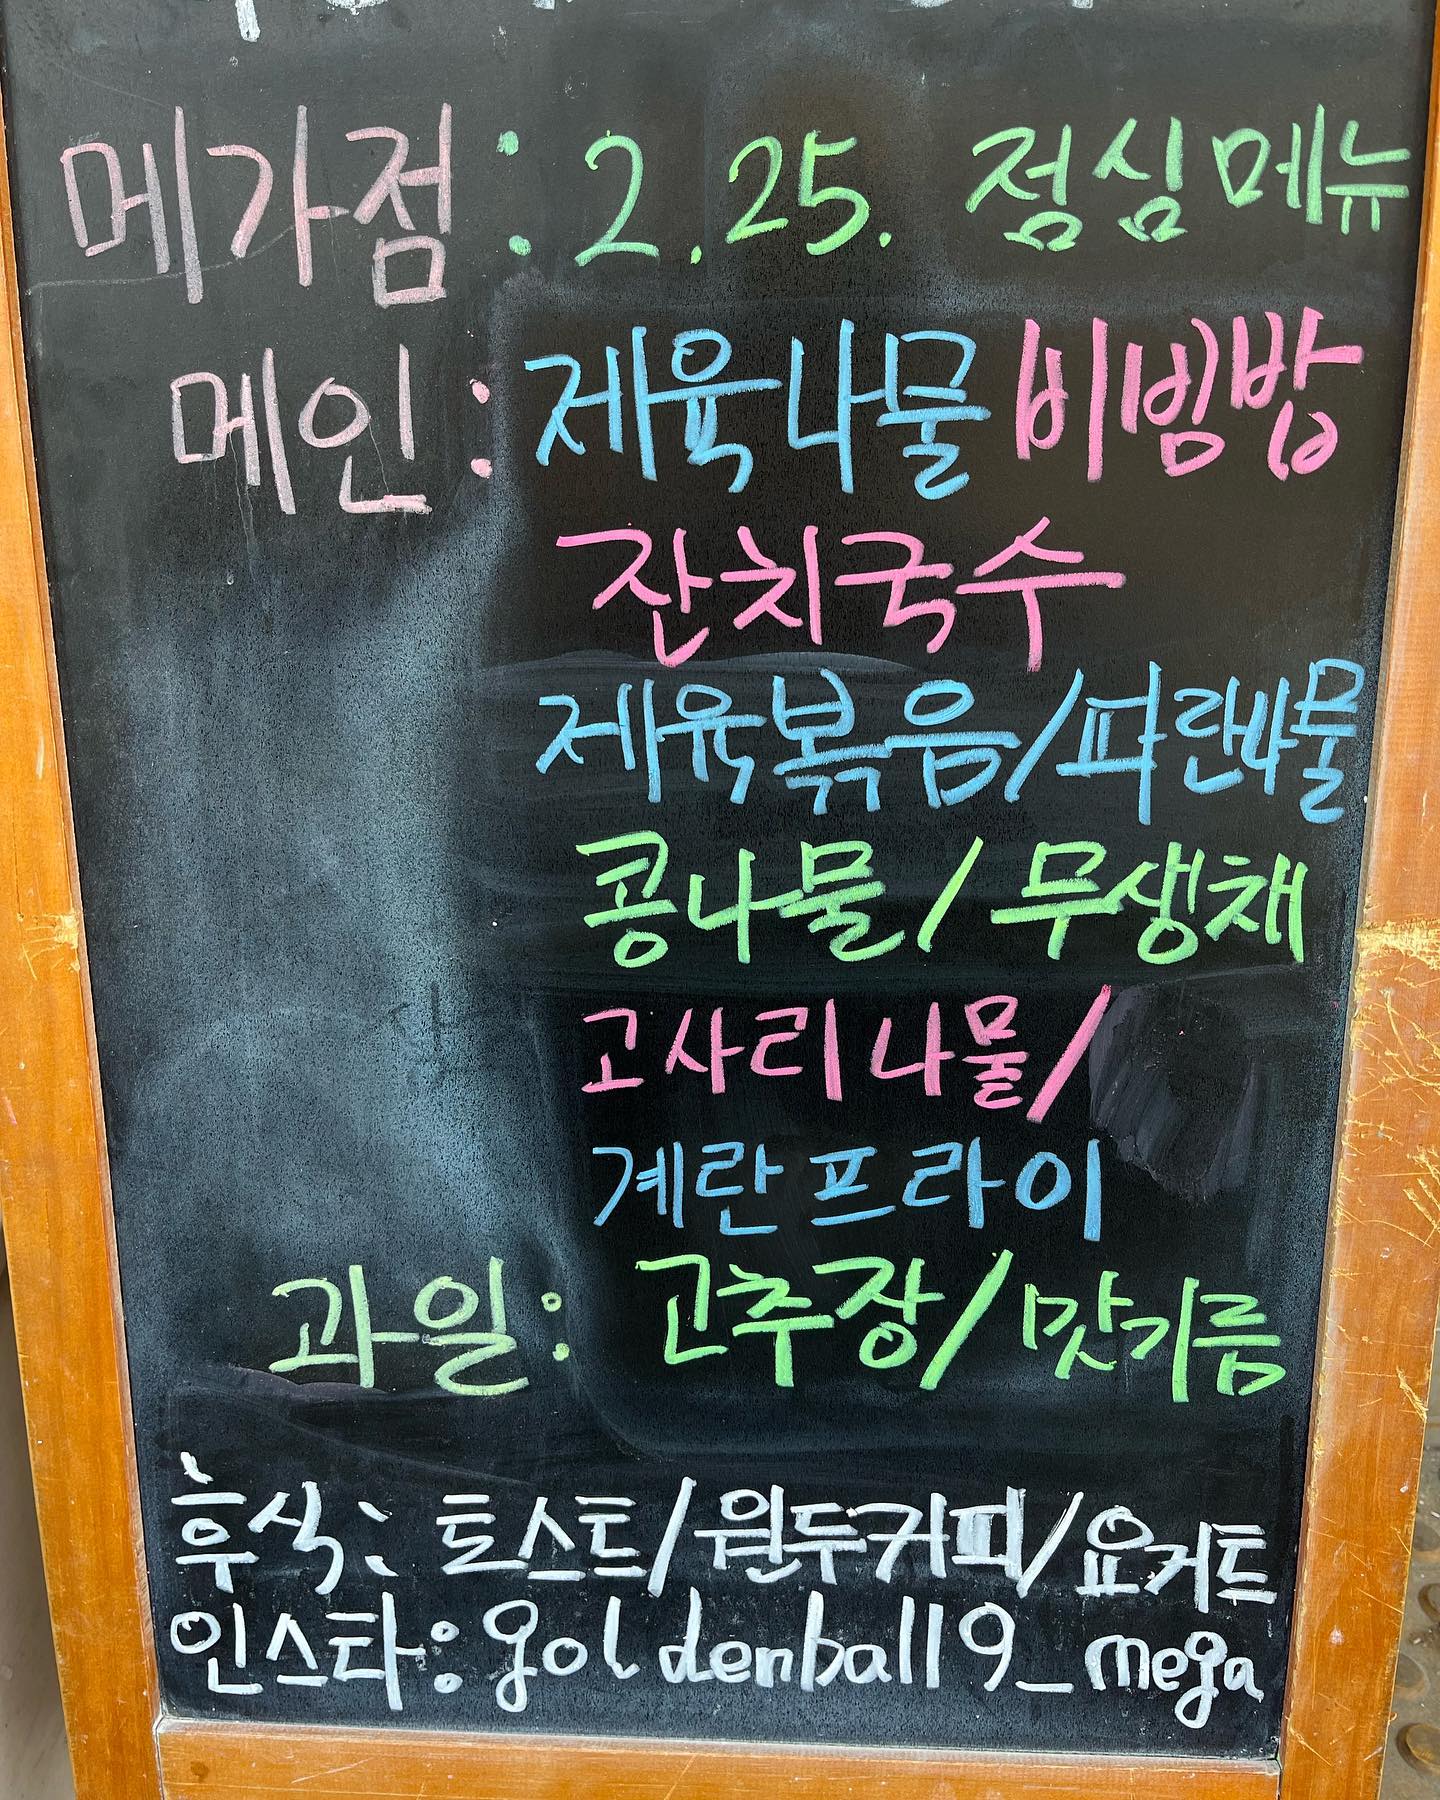 메가점 : 2.25. 점심메뉴
메인 : 제육나물비빔밥
잔치국수
제육볶음/파란나물
콩나물/무생채
고사리나물/
계란프라이
과일: 고추장/맛기름
후식: 토스트/원두커피/요거트
인스타: goldenball19_mega